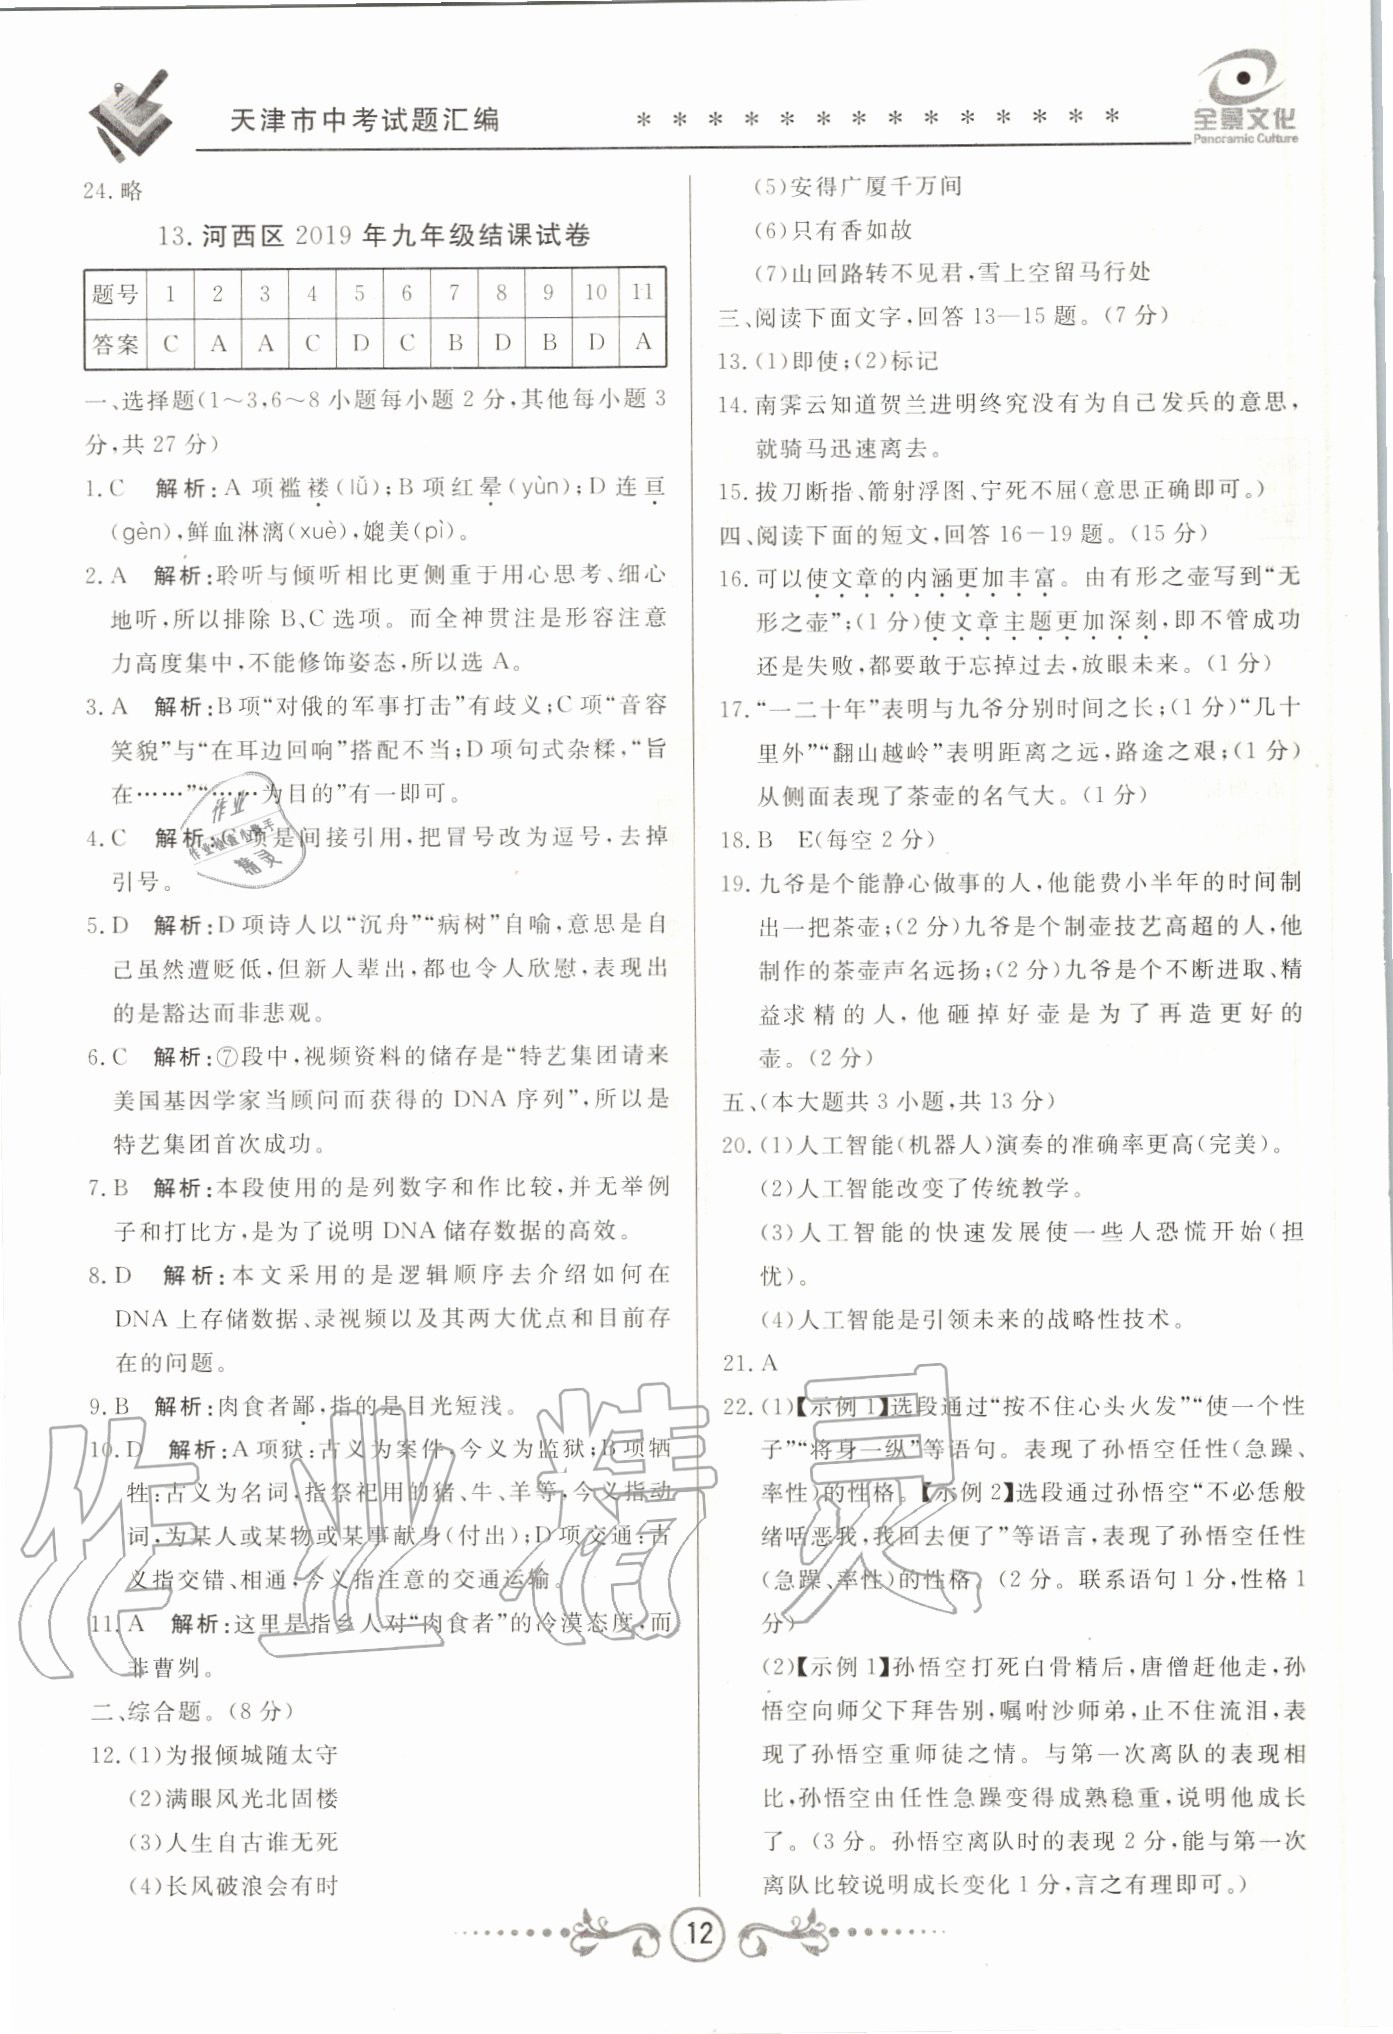 天津市中考试题汇编 * * * * * * * * * * * * * *
全景文化
Panoramic Culture
24.略
13.河西区 2019 年九年级结课试卷
题号 1 2 3 4 5 6 7 8 9 10 11
答案 C A A C D C B D B D A
一、选择题(1～3,6～8 小题每小题 2 分,其他每小题 3
分,共 27 分)
1.C 解析:A 项褴褛(lǚ);B 项红晕(yùn);D 连亘
(gèn),鲜血淋漓(xuè),媲美(pì)。
2.A 解析:聆听与倾听相比更侧重于用心思考、细心
地听,所以排除 B、C 选项。而全神贯注是形容注意
力高度集中,不能修饰姿态,所以选 A。
3.A 解析:B项“对俄的军事打击”有歧义;C 项“音容
笑貌”与“在耳边回响”搭配不当;D 项句式杂糅,“旨
在……”“……为目的”有一即可。
4.C 解析:C 项是间接引用,把冒号改为逗号,去掉
引号。
5.D 解析:D 项诗人以“沉舟”“病树”自喻,意思是自
己虽然遭贬低,但新人辈出,都也令人欣慰,表现出
的是豁达而非悲观。
6.C 解析:⑦段中,视频资料的储存是“特艺集团请来
美国基因学家当顾问而获得的 DNA 序列”,所以是
特艺集团首次成功。
7.B 解析:本段使用的是列数字和作比较,并无举例
子和打比方,是为了说明 DNA 储存数据的高效。
8.D 解析:本文采用的是逻辑顺序去介绍如何在
DNA 上存储数据、录视频以及其两大优点和目前存
在的问题。
9.B 解析:肉食者鄙,指的是目光短浅。
10.D 解析:A 项狱:古义为案件,今义为监狱;B 项牺
牲:古义为名词,指祭祀用的猪、牛、羊等,今义指动
词,为某人或某物或某事献身(付出);D 项交通:古
义指交错、相通,今义指注意的交通运输。
11.A 解析:这里是指乡人对“肉食者”的冷漠态度,而
非曹刿。
二、综合题。(8 分)
12.(1)为报倾城随太守
(2)满眼风光北固楼
(3)人生自古谁无死
(4)长风破浪会有时
(5)安得广厦千万间
(6)只有香如故
(7)山回路转不见君,雪上空留马行处
三、阅读下面文字,回答 13—15 题。(7 分)
13.(1)即使;(2)标记
14.南霁云知道贺兰进明终究没有为自己发兵的意思,
就骑马迅速离去。
15.拔刀断指、箭射浮图、宁死不屈(意思正确即可。)
四、阅读下面的短文,回答 16－19 题。(15 分)
16.可以使文章的内涵更加丰富。由有形之壶写到“无
形之壶”;(1 分)使文章主题更加深刻,即不管成功
还是失败,都要敢于忘掉过去,放眼未来。(1 分)
17.“一二十年”表明与九爷分别时间之长;(1 分)“几十
里外”“翻山越岭”表明距离之远,路途之艰;(1 分)
从侧面表现了茶壶的名气大。(1 分)
18.B E(每空 2 分)
19.九爷是个能静心做事的人,他能费小半年的时间制
出一把茶壶;(2 分)九爷是个制壶技艺高超的人,他
制作的茶壶声名远扬;(2 分)九爷是个不断进取、精
益求精的人,他砸掉好壶是为了再造更好的
壶。(2 分)
五、(本大题共 3 小题,共 13 分)
20.(1)人工智能(机器人)演奏的准确率更高(完美)。
(2)人工智能改变了传统教学。
(3)人工智能的快速发展使一些人恐慌开始(担
忧)。
(4)人工智能是引领未来的战略性技术。
21.A
22.(1)【示例 1】选段通过“按不住心头火发”“使一个性
子”“将身一纵”等语句。表现了孙悟空任性(急躁、
率性)的性格。【示例 2】选段通过孙悟空“不必恁般
绪咶恶我,我回去便了”等语言,表现了孙悟空任性
(急躁、率性)的性格。(2 分。联系语句 1 分,性格 1
分)
(2)【示例 1】孙悟空打死白骨精后,唐僧赶他走,孙
悟空向师父下拜告别,嘱咐沙师弟,止不住流泪,表
现了孙悟空重师徒之情。与第一次离队的表现相
比,孙悟空由任性急躁变得成熟稳重,说明他成长
了。(3 分。孙悟空离队时的表现 2 分,能与第一次
离队比较说明成长变化 1 分,言之有理即可。)
12
作业精灵